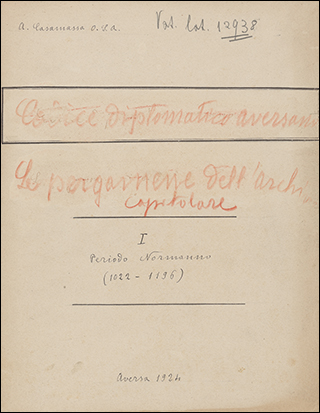 A. Casamassa O.S.A.
Vat. lat. 12938
Codice diplomatico aversano
Le pergamene dell'archi
capitolare
I
Periodo Normanno
(1022 - 1196)
Aversa 1924